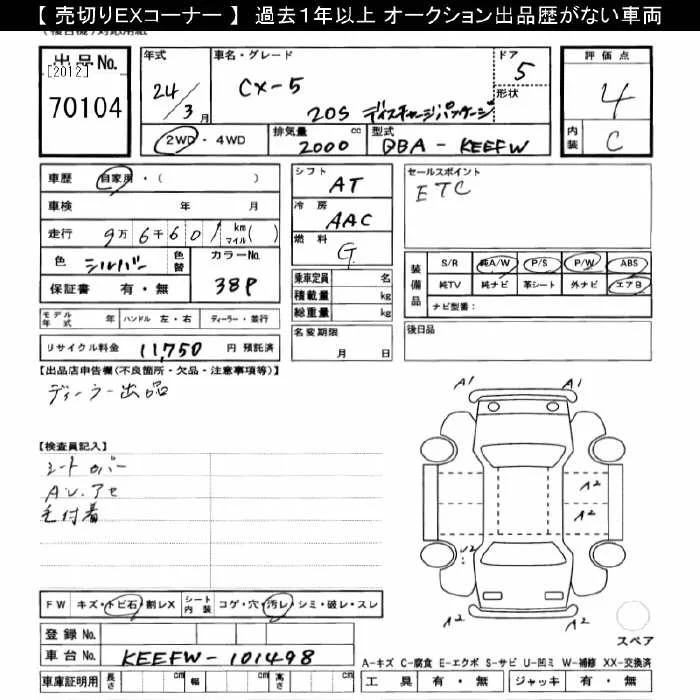 【 売切りEXコーナー 】 過去1年以上 オークション出品歴がない車両
出品No.
[2012]
70104
年式
24/3月
車名・グレード
CX-5
20S ディスチャージパッケージ
ドア
5
形状
評価点
4
内装
C
2WD・4WD
排気量
2000 cc
型式
DBA-KEEFW
車歴 自家用・( )
車検 年 月
走行 9万6千601 km マイル( )
色 シルバー
色替
カラーNo.
38P
保証書 有・無
シフト
AT
冷房
AAC
燃料
G
乗車定員 名
積載量 kg
総重量 kg
名変期限
月 日
セールスポイント
ETC
装備品
S/R 純A/W P/S P/W ABS
純TV 純ナビ 革シート 外ナビ エアB
ナビ型番:
後日品
モデル年式 年 ハンドル 左・右 ディーラー・並行
リサイクル料金 11,750 円 預託済
【出品店申告欄(不良箇所・欠品・注意事項等)】
ディーラー出品
【検査員記入】
シートカバー
毛付着
A1 A1
A2
A2
A2 A2
スペア
FW キズ・トビ石・割レX シート内装 コゲ・穴・汚レ・シミ・破レ・スレ
登録No.
車台No. KEEFW-101498
車庫証明用 長さ cm 幅 cm 高さ cm
A-キズ C-腐食 E-エクボ S-サビ U-凹ミ W-補修 XX-交換済
工具 有・無 ジャッキ 有・無